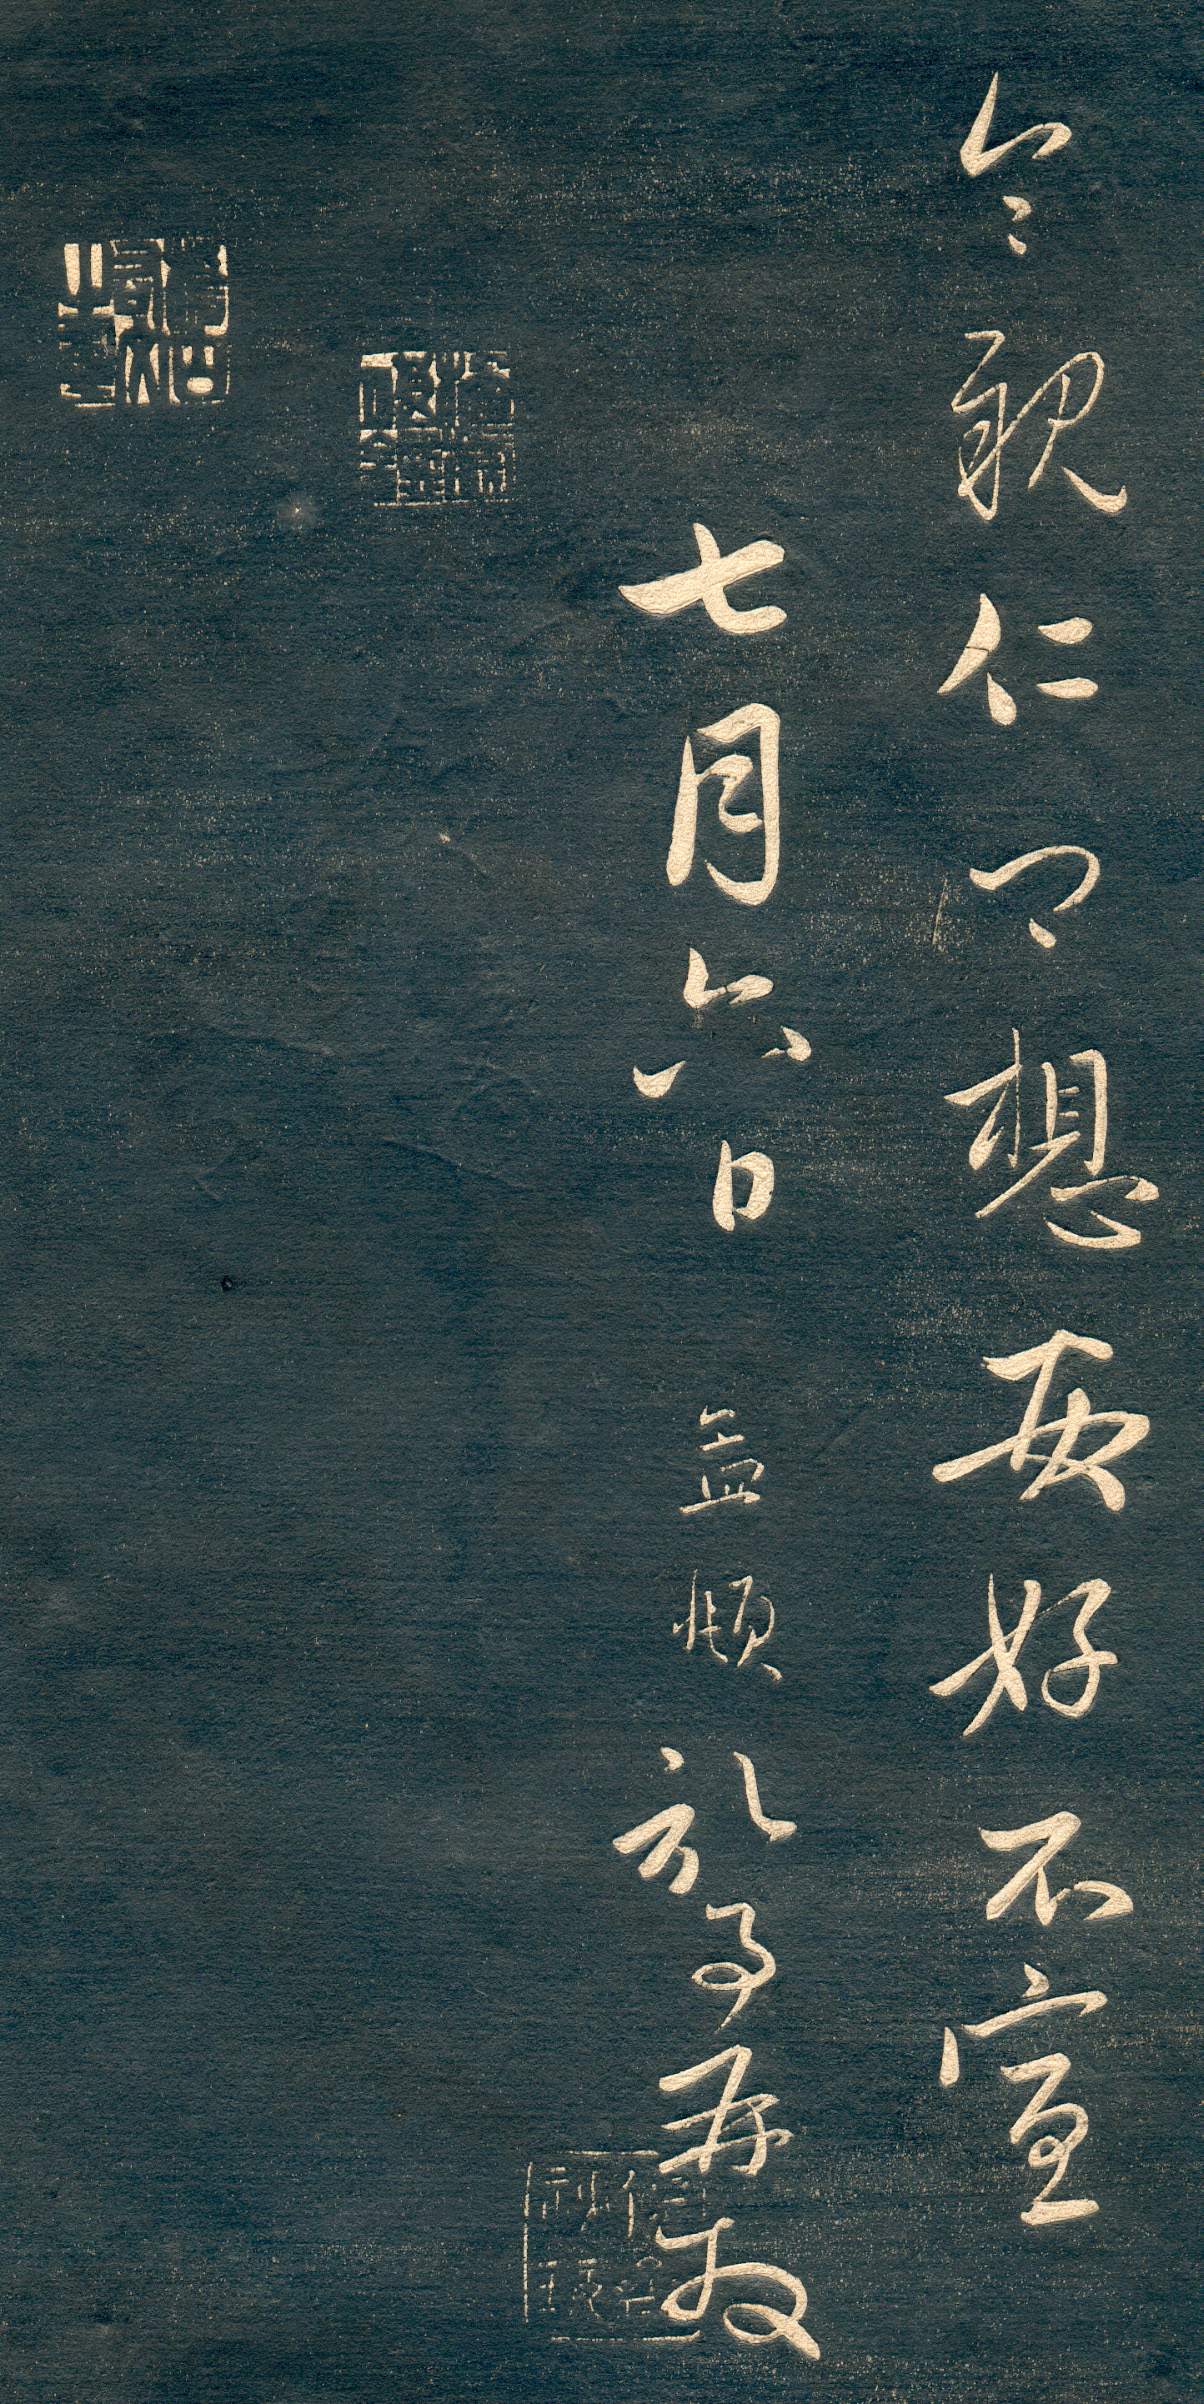 令親仁卿想安好不宣
七月六日孟頫記事再拜